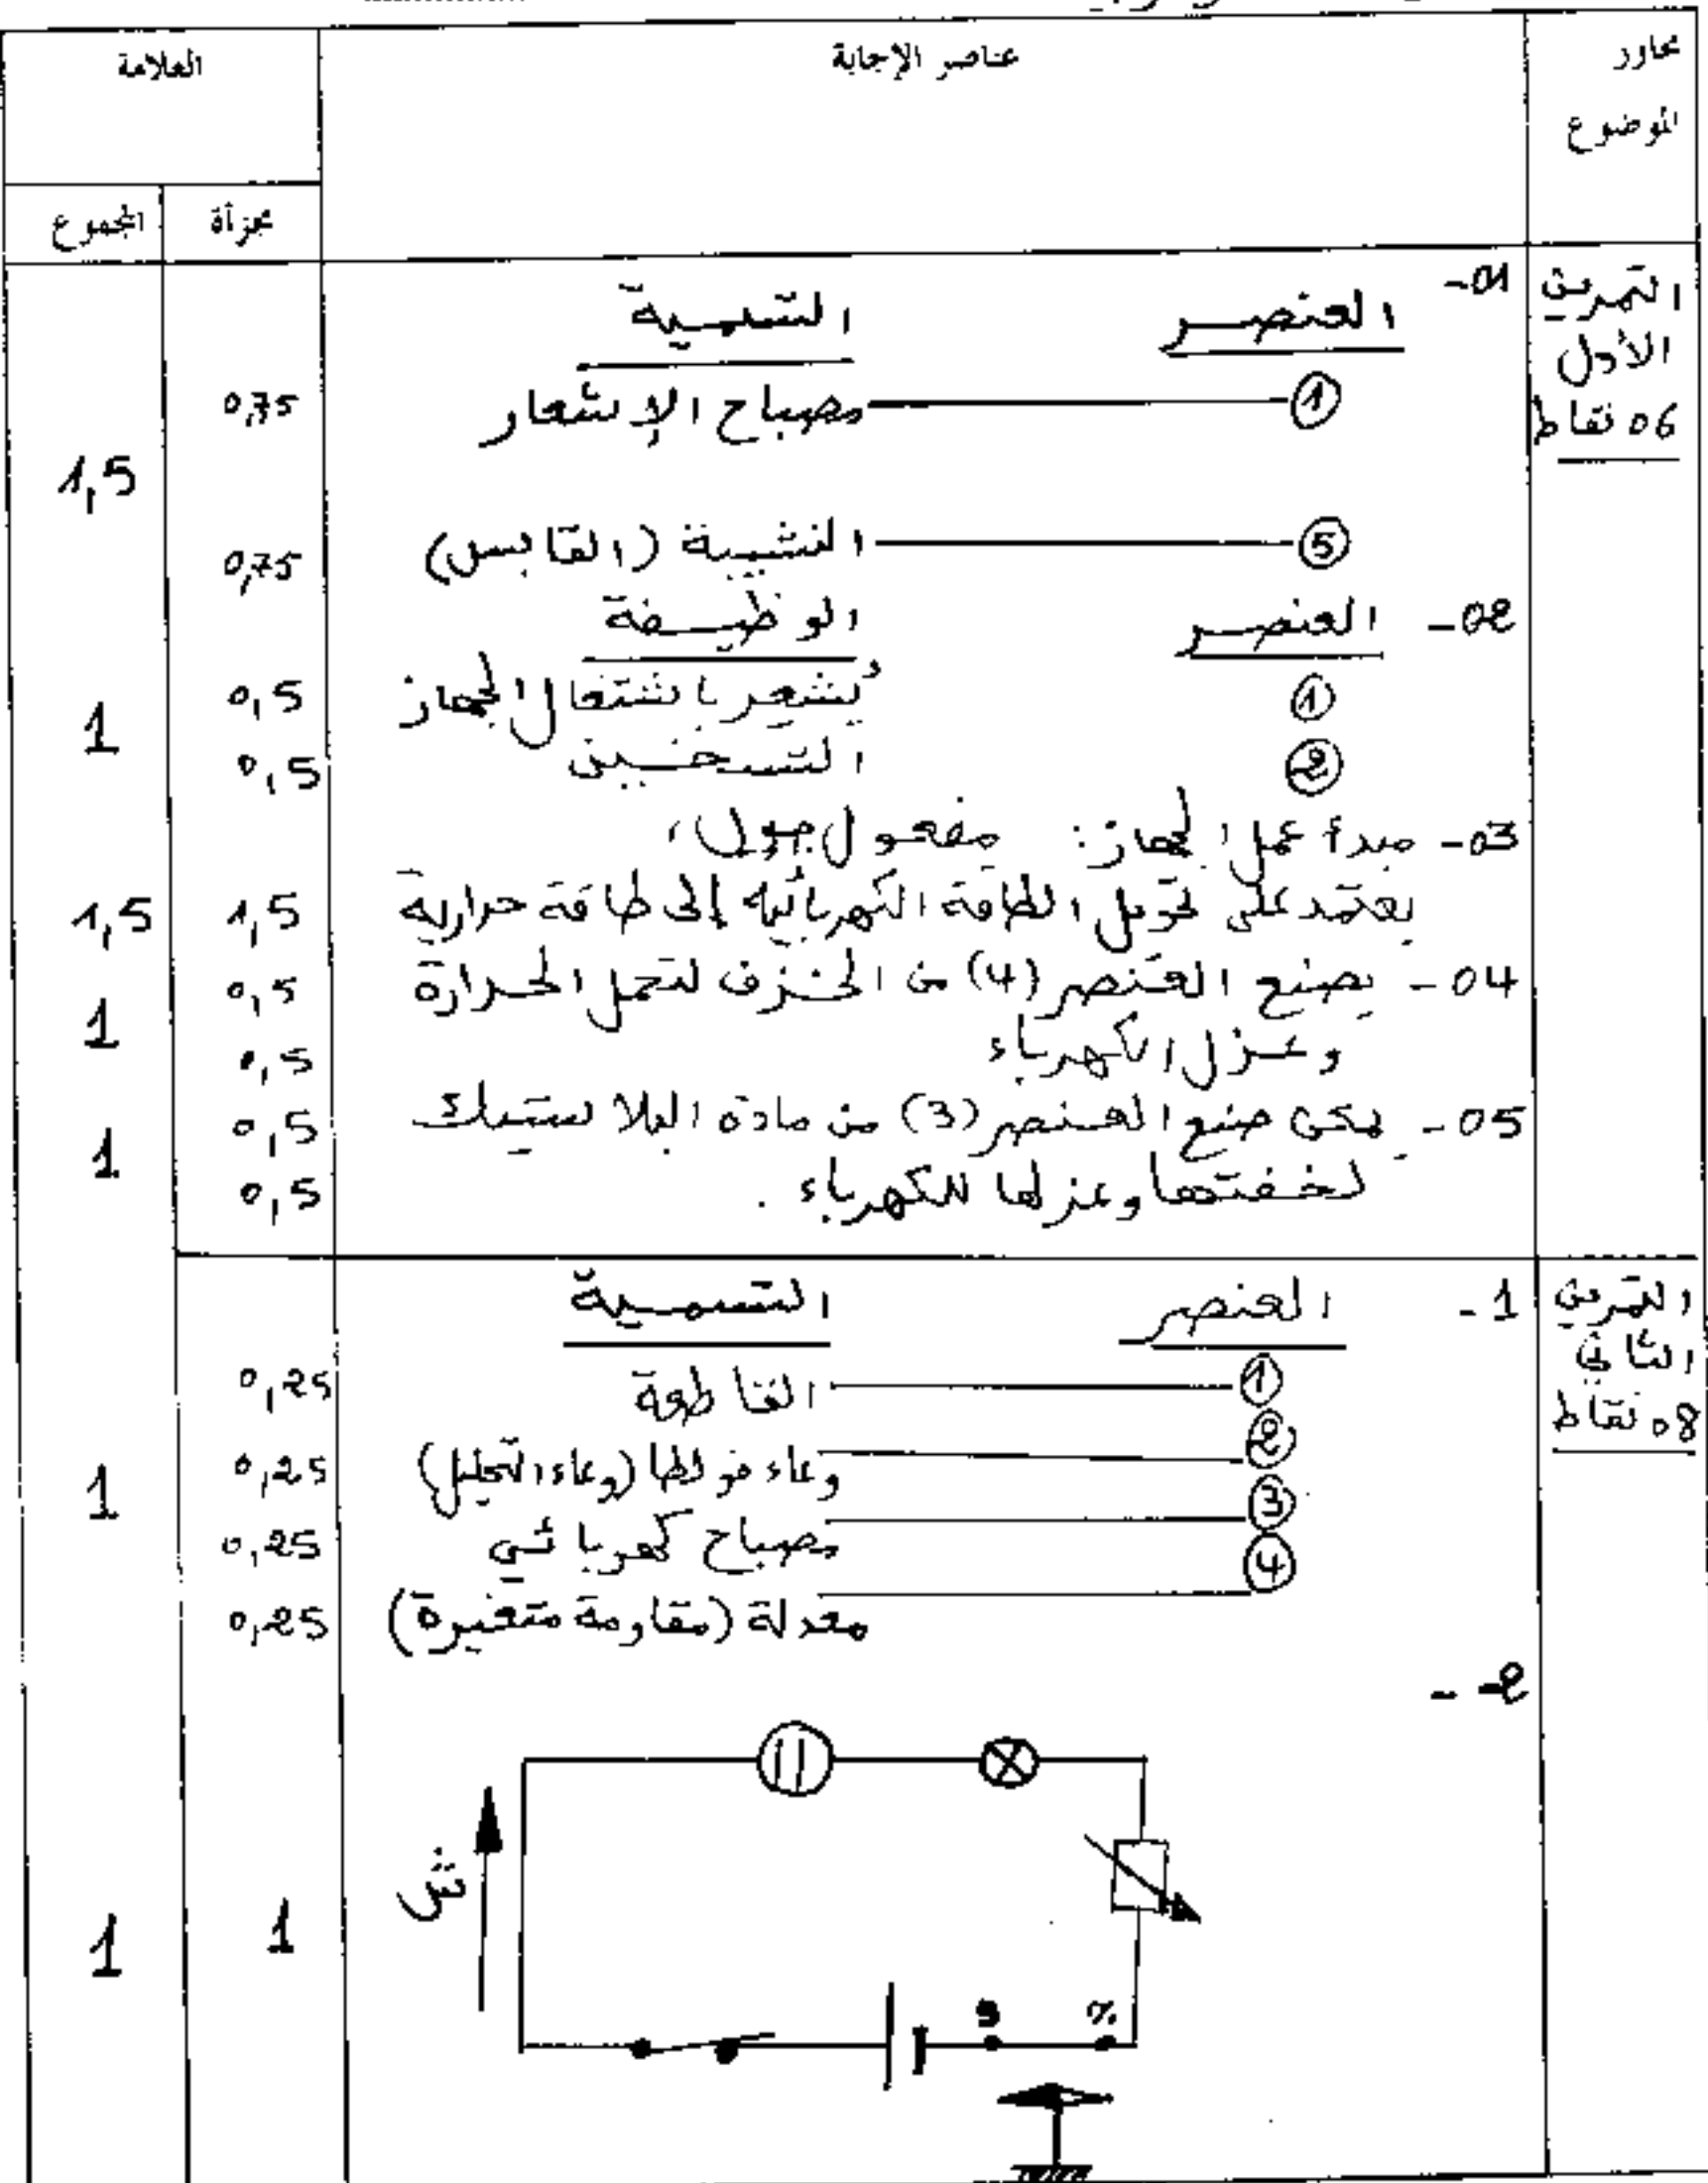 محاور
الموضوع
عناصر الإجابة
العلامة
مجزأة
المجموع
التمرين
الأول
06 نقاط
01- العنصر التسمية
① مصباح الإشعار 0,75
1,5
⑤ النشيبة (القابس) 0,75
02- العنصر الوظيفة
① يُشعر باشتغال الجهاز 0,5
1
② التسخين 0,5
03- مبدأ عمل الجهاز: مفعول جول،
يعتمد على تحويل الطاقة الكهربائية إلى طاقة حرارية 1,5 1,5
04- يصنع العنصر (4) من الخزف لتحمل الحرارة 0,5
1
وعزل الكهرباء 0,5
05- يمكن صنع العنصر (3) من مادة البلاستيك 0,5
1
لخفتها وعزلها للكهرباء. 0,5
التمرين
الثاني
08 نقاط
1- العنصر التسمية
① القاطعة 0,25
② وعاء فولطا (وعاء التحليل) 0,25
1
③ مصباح كهربائي 0,25
④ معدلة (مقاومة متغيرة) 0,25
2-
ش
1 1